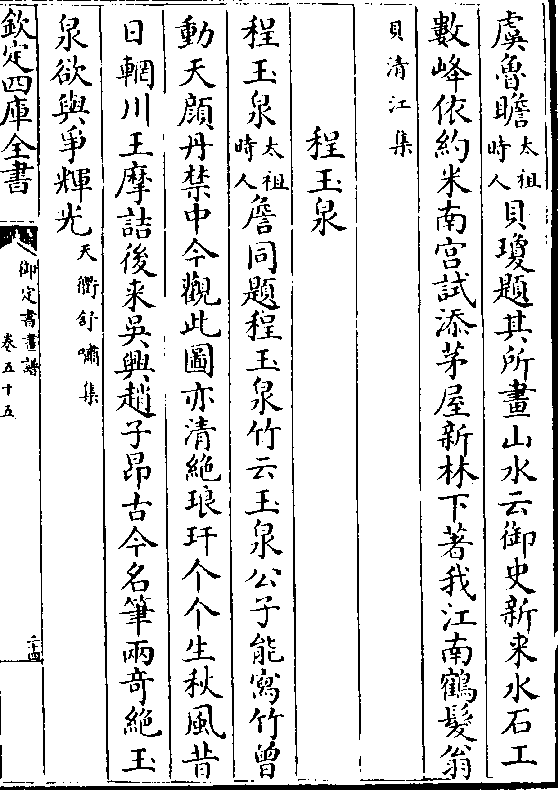 虞魯瞻太祖時人貝瓊題其所畫山水云御史新来水石工
數峰依約米南宫試添茅屋新林下著我江南鶴髪翁
貝清江集
程玉泉
程玉泉太祖時人詹同題程玉泉竹云玉泉公子能寫竹曾
動天顔丹禁中今觀此圖亦清絶琅玕个个生秋風昔
日輞川王摩詰後来吳興趙子昂古今名筆兩竒絶玉
泉欲與爭輝光天衢舒嘯集
欽定四庫全書
御定書畫譜
卷五十五
二十四